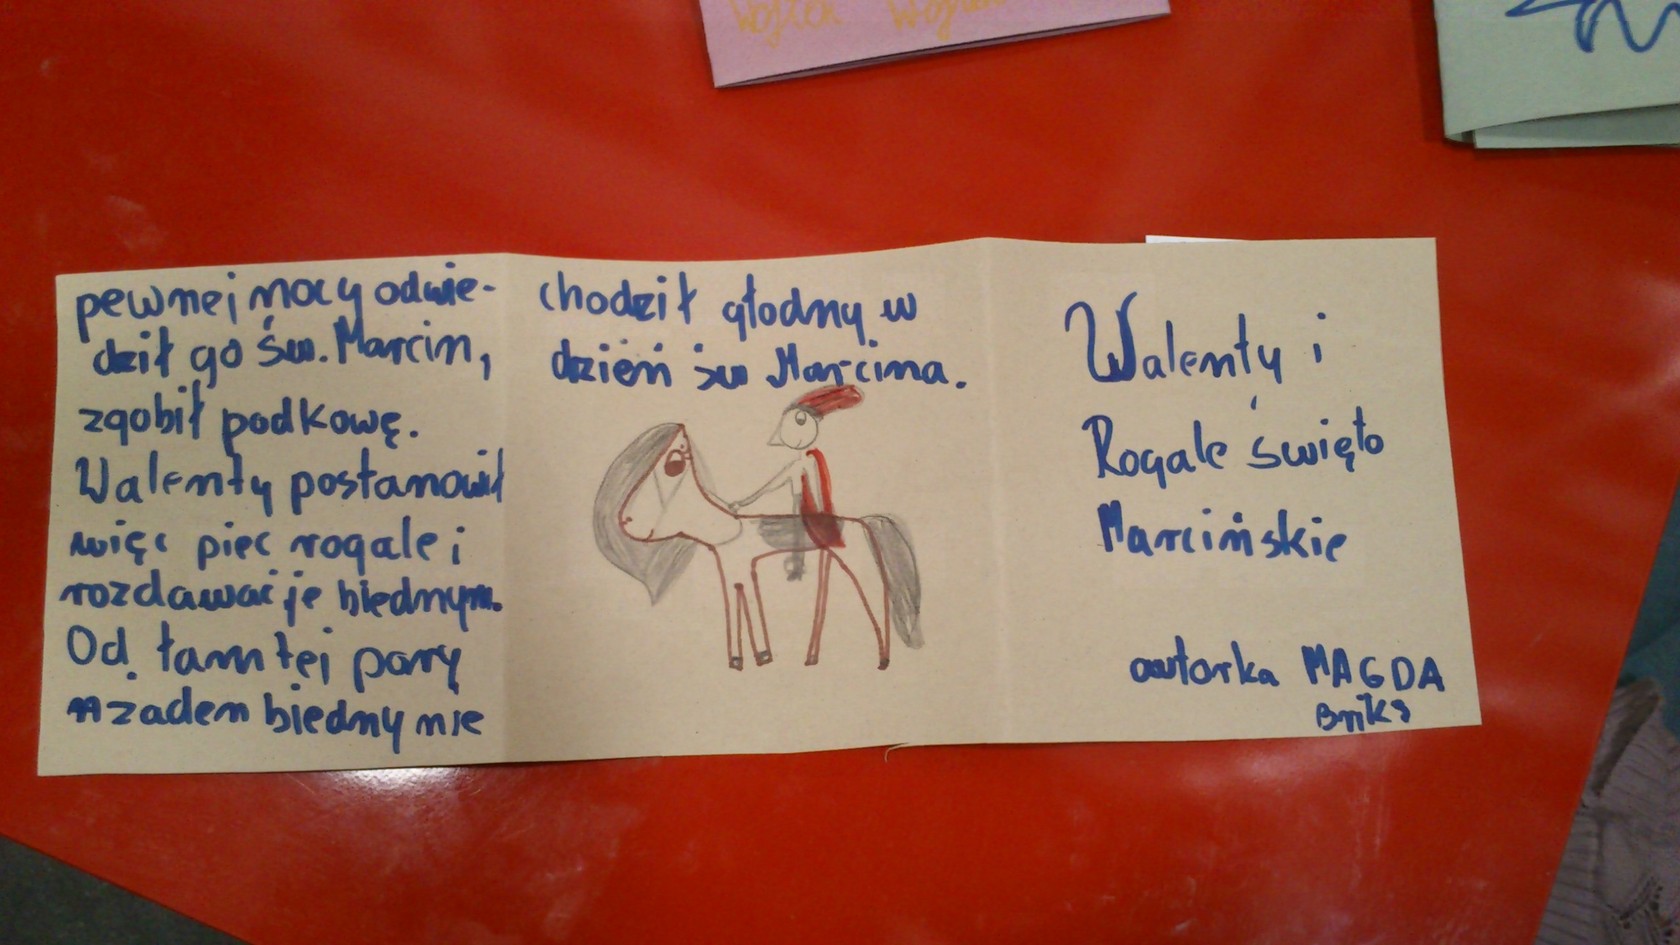 Wojtek Wojtek
pewnej nocy odwie-
dził go św. Marcin,
zgobił podkowę.
Walenty postanowił
więc piec rogale i
rozdawać je biednym.
Od tamtej pory
żaden biedny nie
chodził głodny w
dzień św Marcina.
Walenty i
Rogale święto
Marcińskie
autorka MAGDA